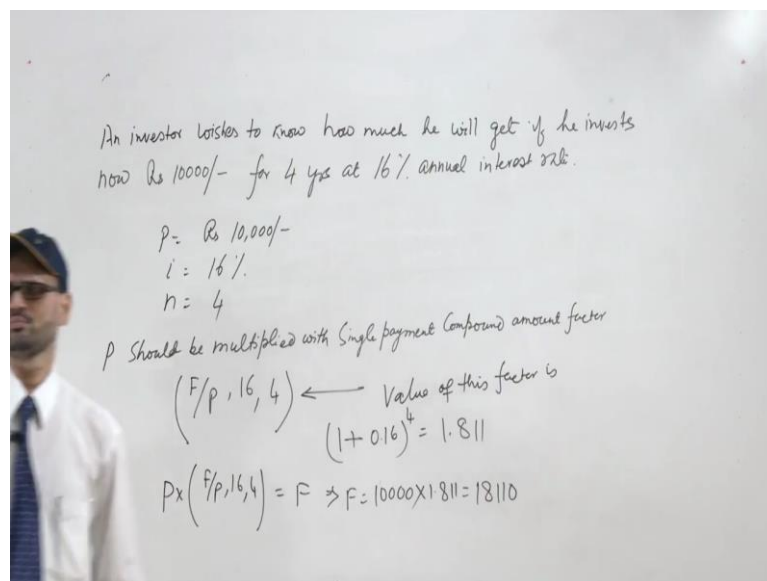 An investor wishes to know how much he will get if he invests
now Rs 10000/- for 4 yrs at 16% annual interest rate.
P = Rs 10,000/-
i = 16%.
n = 4
P Should be multiplied with Single payment Compound amount factor
(F/P, 16, 4) ← Value of this factor is
(1+0.16)^4 = 1.811
P×(F/P,16,4) = F ⇒ F = 10000×1.811=18110